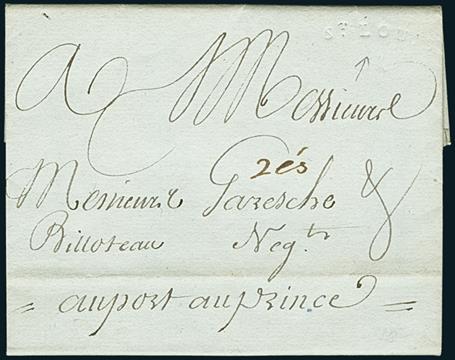 A Messieurs
2és
Messieurs Garesche &
Billoteau Negts
= au port au prince =